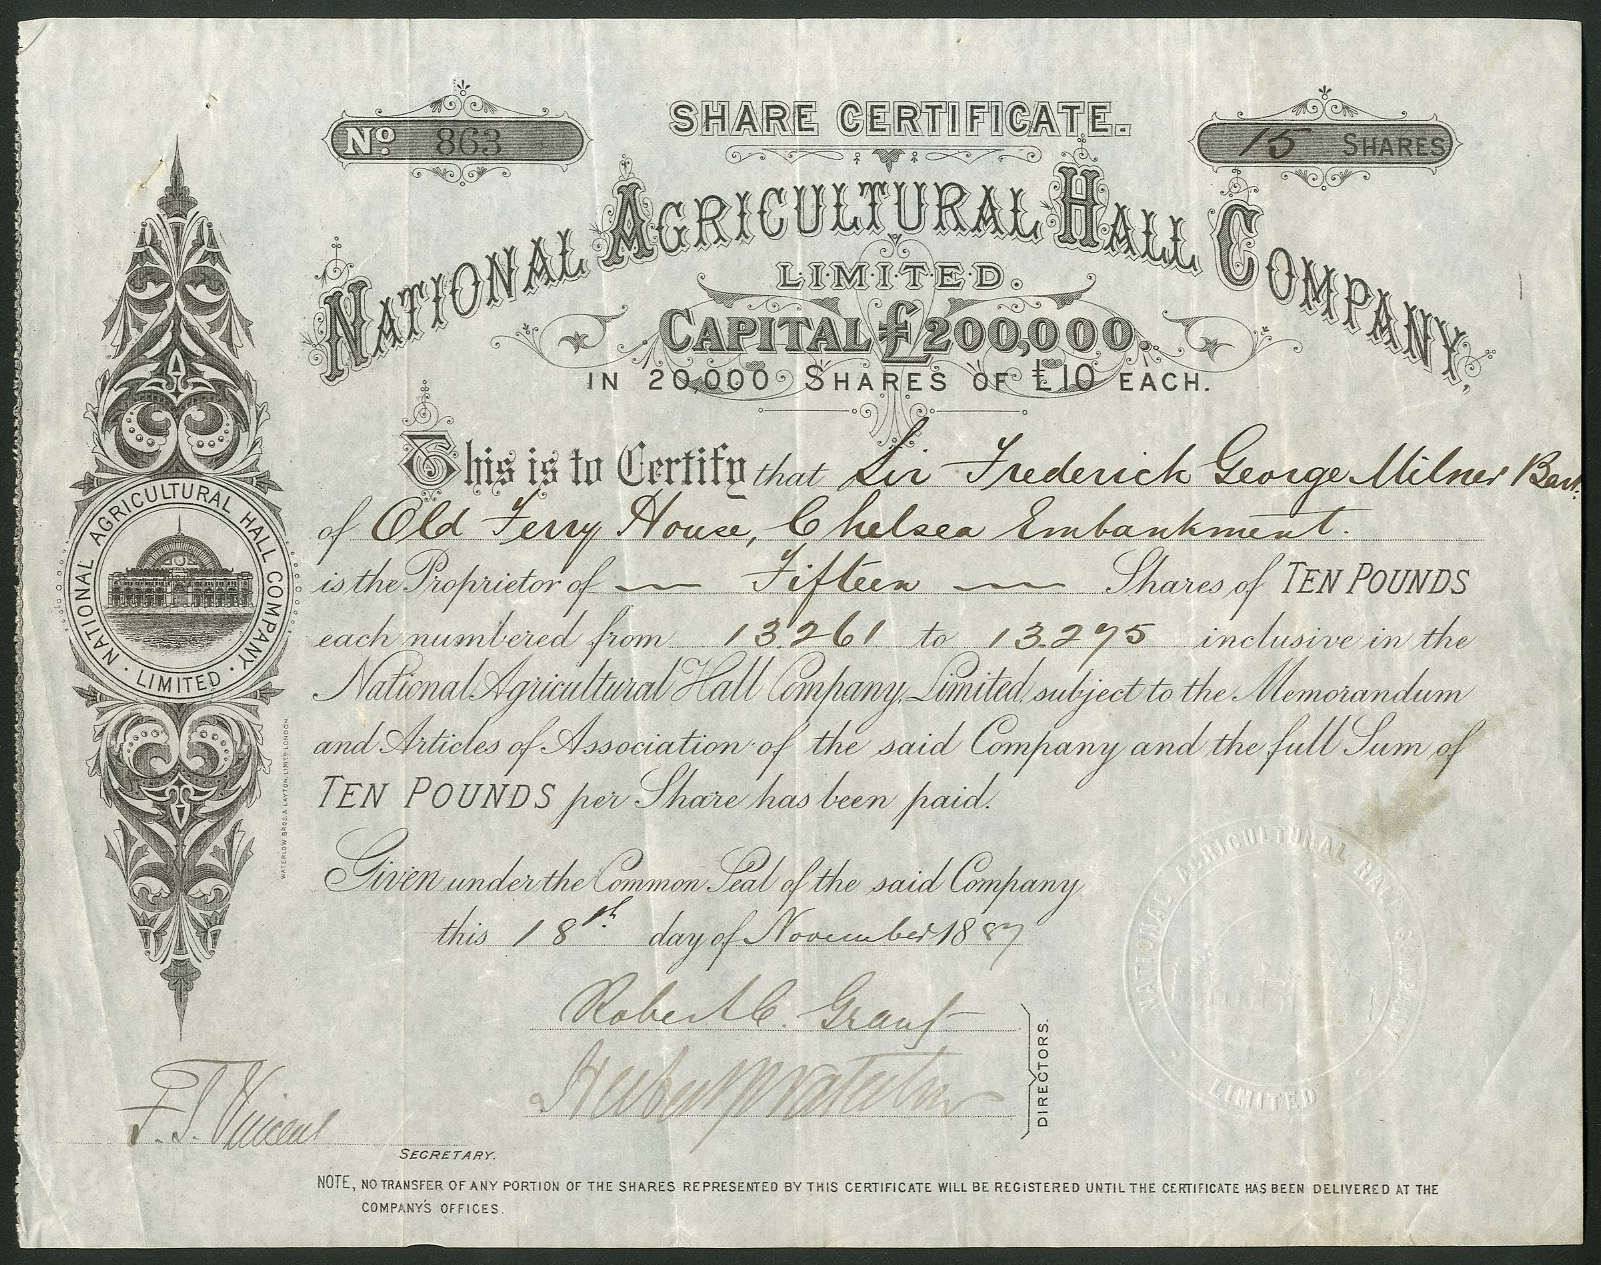 SHARE CERTIFICATE.
No. 863
15 SHARES
NATIONAL AGRICULTURAL HALL COMPANY,
LIMITED.
CAPITAL £200,000.
IN 20,000 SHARES OF £10 EACH.
This is to Certify that Sir Frederick George Milner Bart.
of Old Ferry House, Chelsea Embankment.
is the Proprietor of — Fifteen — Shares of TEN POUNDS
each numbered from 13.261 to 13.275 inclusive in the
National Agricultural Hall Company, Limited, subject to the Memorandum
and Articles of Association of the said Company and the full Sum of
TEN POUNDS per Share has been paid.
Given under the Common Seal of the said Company
this 18th. day of November 1887
Robert C. Grant
DIRECTORS.
F. T. Vincent
SECRETARY.
NOTE, NO TRANSFER OF ANY PORTION OF THE SHARES REPRESENTED BY THIS CERTIFICATE WILL BE REGISTERED UNTIL THE CERTIFICATE HAS BEEN DELIVERED AT THE
COMPANY'S OFFICES.
NATIONAL AGRICULTURAL HALL COMPANY
· LIMITED ·
WATERLOW BROS. & LAYTON, LIMTD. LONDON
NATIONAL AGRICULTURAL HALL COMPANY
LIMITED